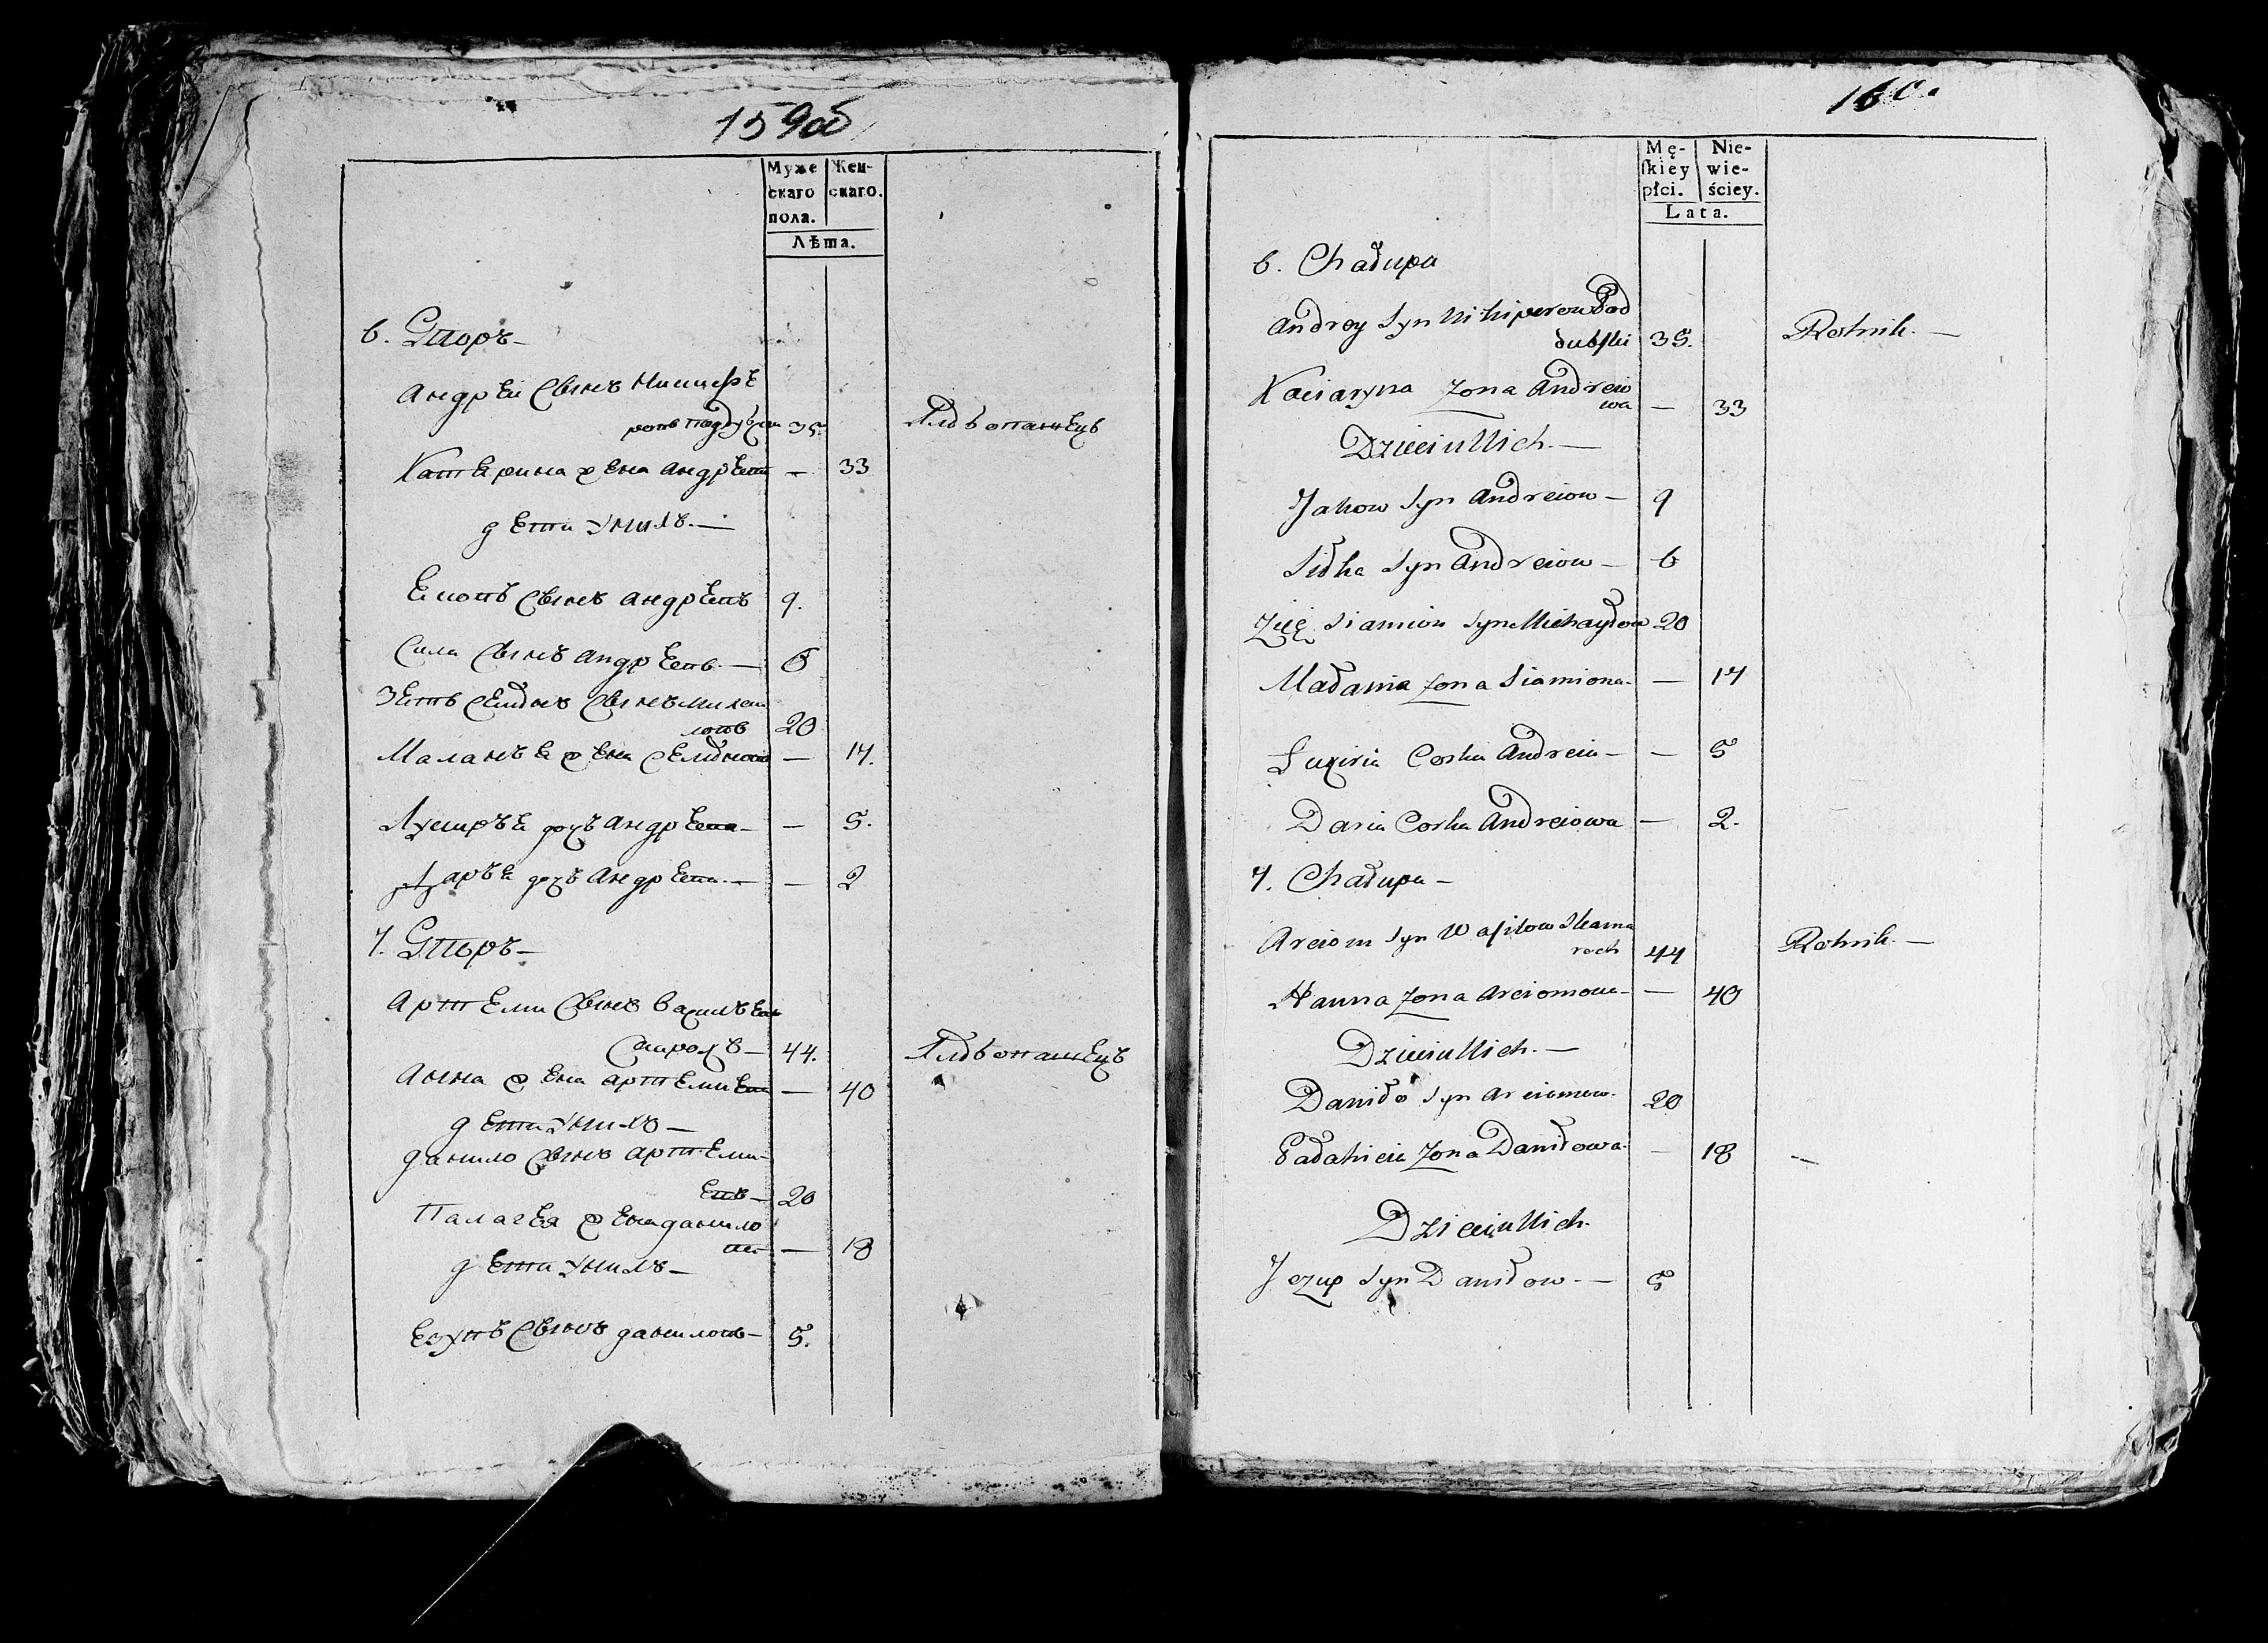 159об
Муже
скаго
пола.
Жен-
скаго.
Лѣта.
6. Дворъ
Андрей сынъ Никифе
ровъ Поддубски 35
Катерина жена Андреева — 33
дети у нихъ
Ековъ сынъ Андреевъ 9.
Сила сынъ Андреевъ 6
Зеть Семіонъ сынъ Михай
ловъ 20
Маланъя жена Семіонова — 17.
Луциръя дочъ Андреева — 5.
Даръя дочъ Андреева — 2
7. Дворъ
Артеми сынъ Василъев
44.
Анна жена Артемиева — 40
дети у нихъ
Данило сынъ Артеми
евъ 20
Палагея жена Данило
ва — 18
дети у нихъ
Езупъ сынъ Даниловъ 5.
160.
Mę-
ſkiey
płci.
Nie-
wie-
ściey.
Lata.
6. Chałupa
Andrey Syn Nikiperow Pod
dubſki 35. Rolnik.
Kaciaryna Zona Andreio
wa — 33
Dzieci u Nich
Jakow Syn Andreiow 9
Siłka Syn Andreiow 6
Zięć Siamion Syn Michayłow 20
Małania Zona Siamiona — 17
Łuciria Corka Andreia — 5
Daria Corka Andreiowa — 2.
7. Chałupa
Arciom Syn Waſilow Skama
roch 44 Rolnik.
Hanna Zona Arciomowa — 40
Dzieci u Nich
Daniło Syn Arciomow 20
Pałahieia Zona Daniłowa — 18
Dzieci u Nich
Jezup Syn Daniłow 5